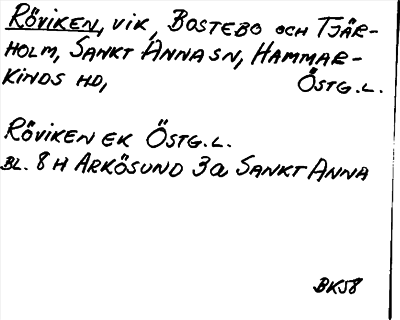 RÖVIKEN, VIK, BOSTEBO OCH TJÄR-
HOLM, SANKT ANNA SN, HAMMAR-
KINDS HD, ÖSTG.L.
RÖVIKEN EK ÖSTG.L.
BL. 8 H ARKÖSUND 3a SANKT ANNA
BK58